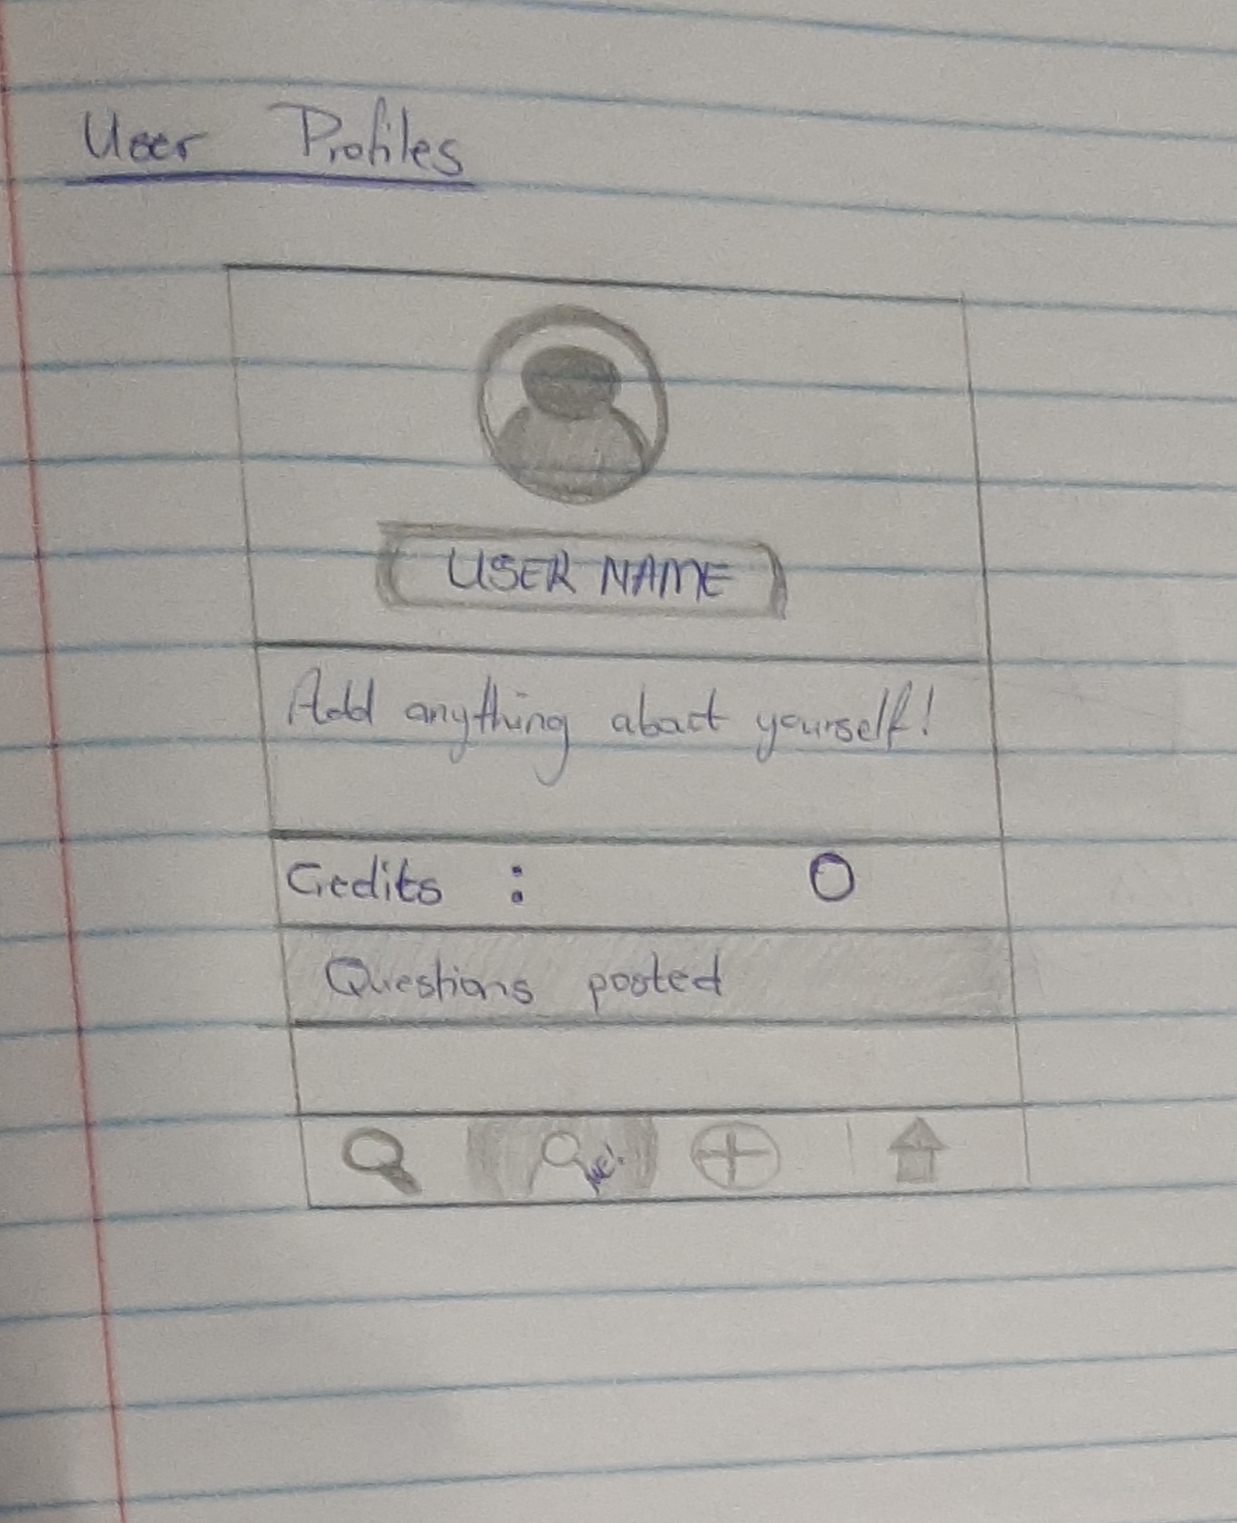 User Profiles
USER NAME
Add anything about yourself!
Credits : 0
Questions posted
Me!